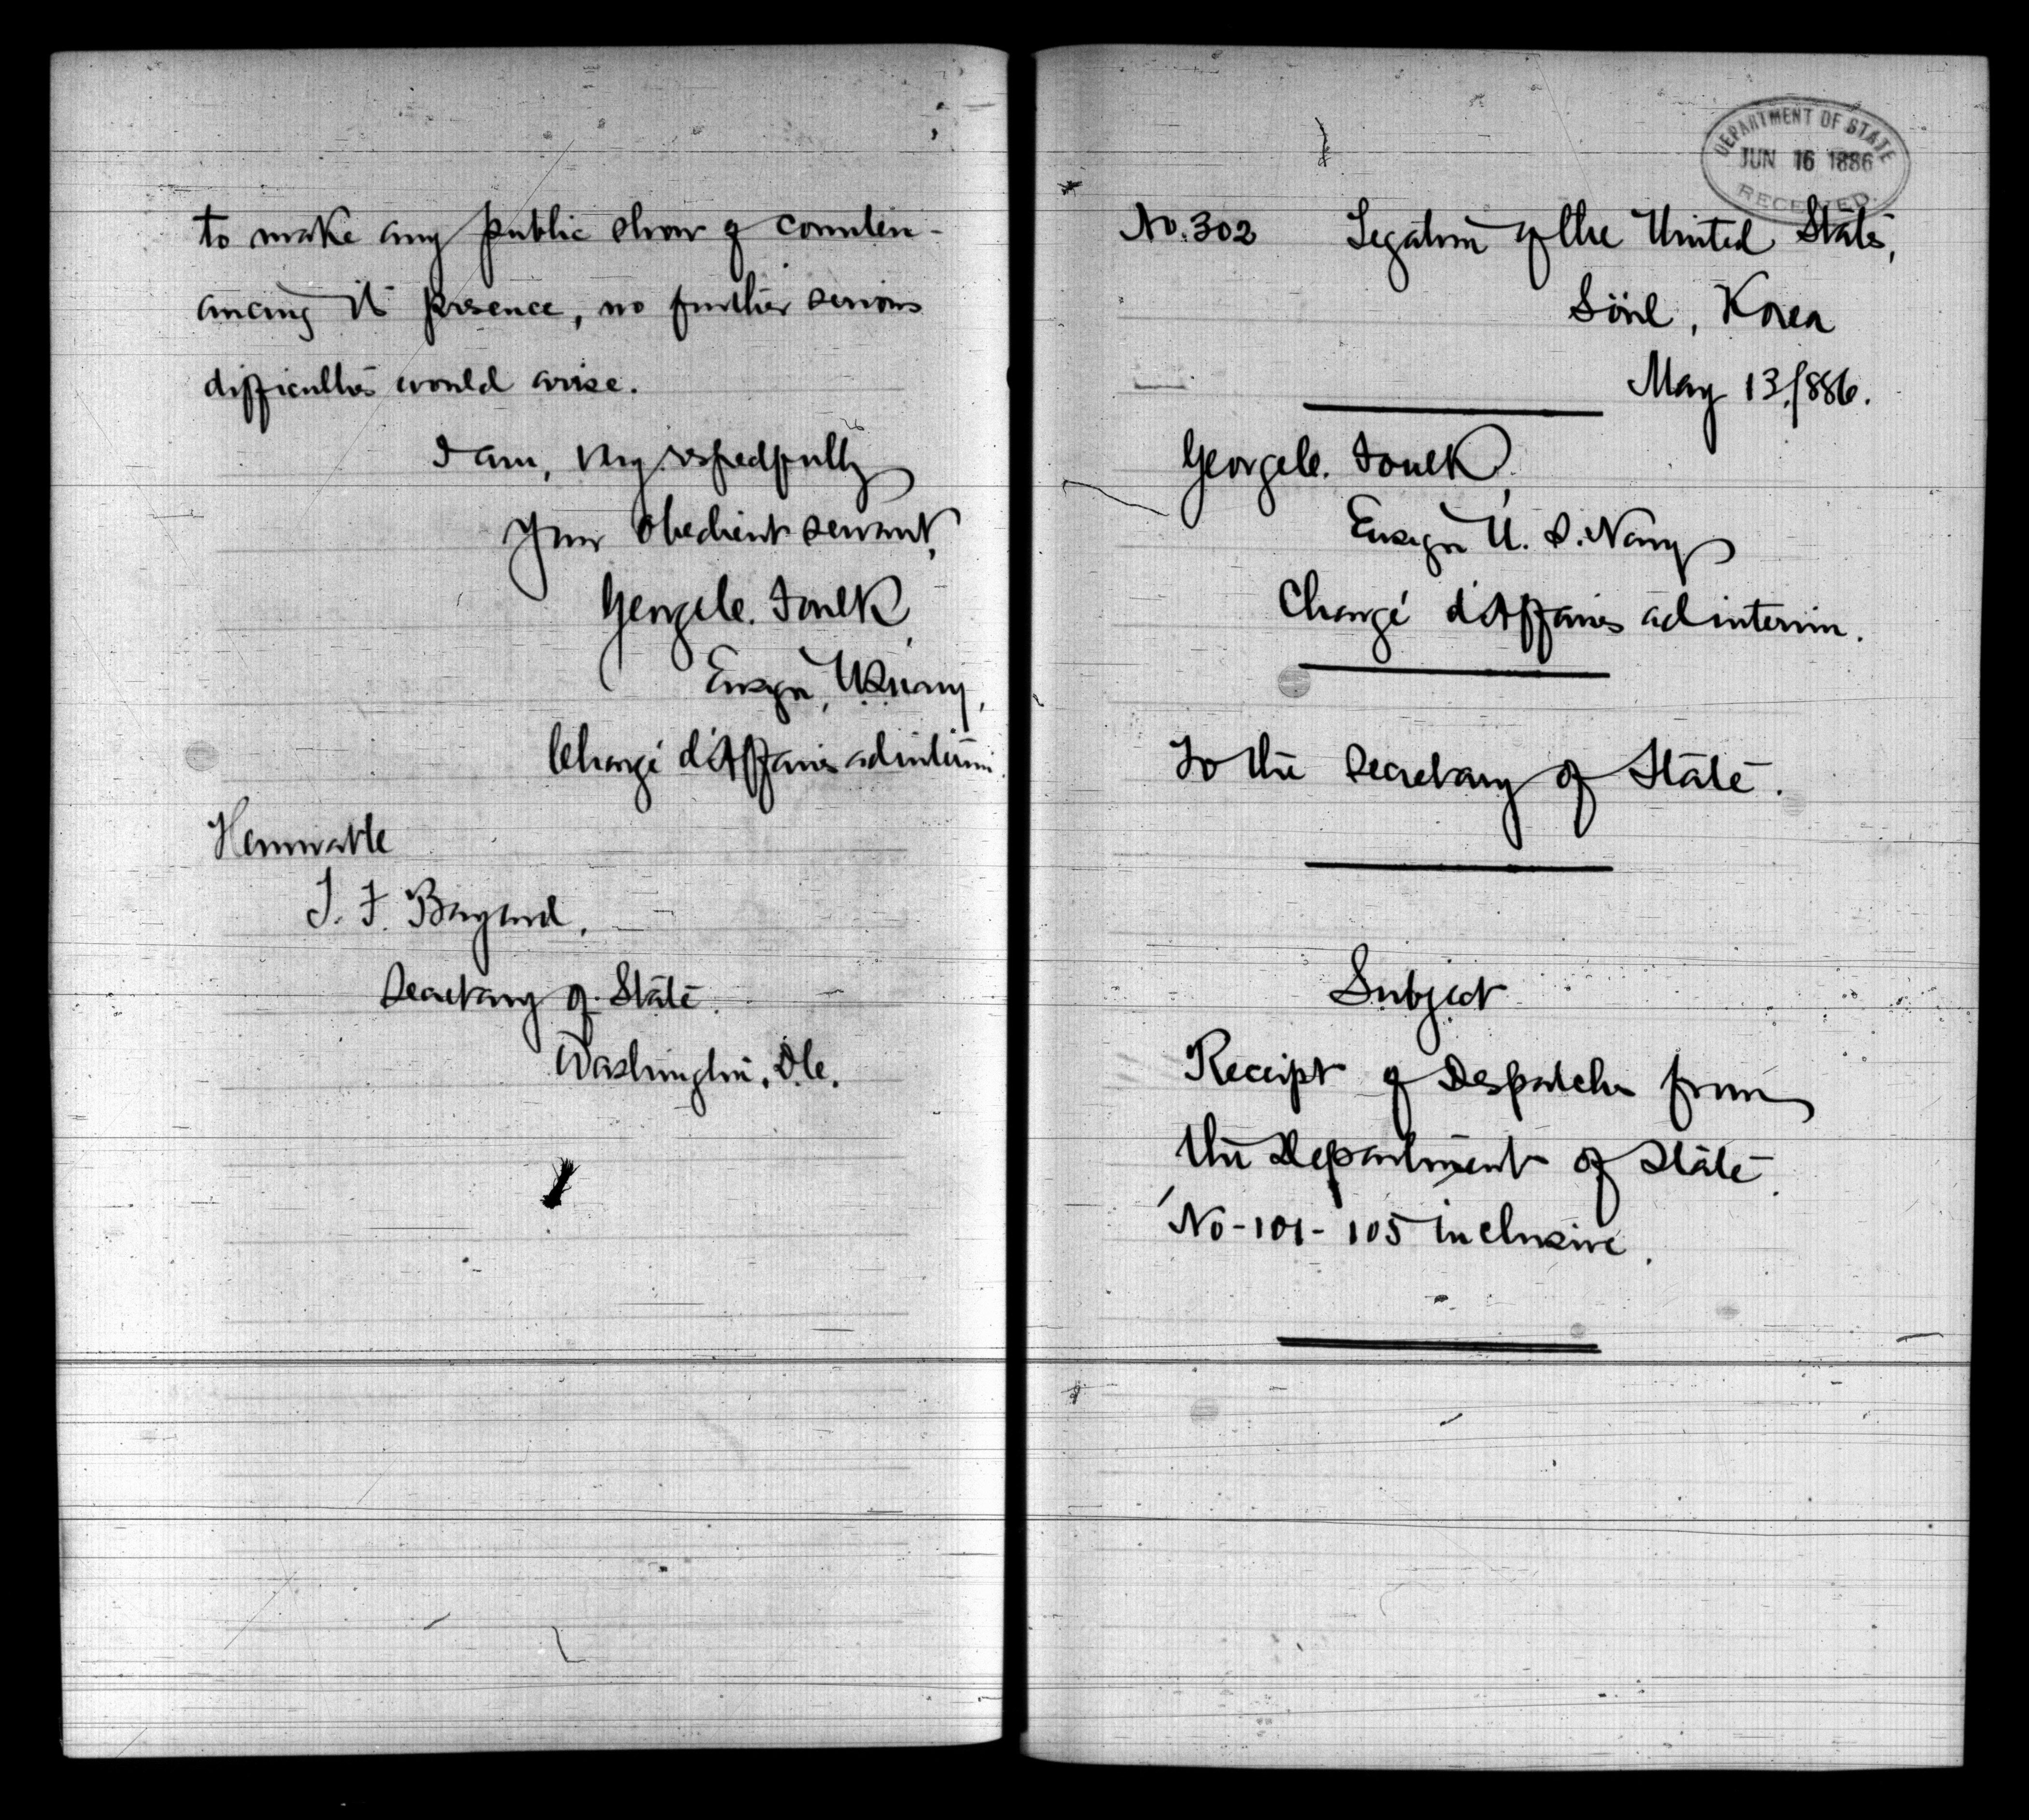 to make any public show of counten-
ancing its presence, no further serious
difficulties would arise.
I am, very respectfully
Your obedient servant,
George C. Foulk,
Ensign, U.S. Navy,
Chargé d'Affaires ad interim.
Honorable
T. F. Bayard,
Secretary of State.
Washington, D.C.
DEPARTMENT OF STATE
JUN 16 1886
RECEIVED.
No. 302 Legation of the United States,
Söul, Korea
May 13, 1886.
George C. Foulk,
Ensign U. S. Navy
Chargé d'Affaires ad interim.
To the Secretary of State.
Subject
Receipt of Despatches from
the Department of State.
No-101-105 inclusive.